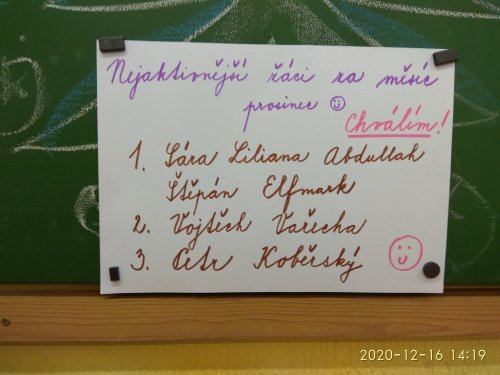 Nejaktivnější žáci za měsíc
prosinec
Chválím!
1. Sára Liliana Abdullah
Štěpán Elfmark
2. Vojtěch Vařecha
3. Petr Koběrský
2020-12-16 14:19